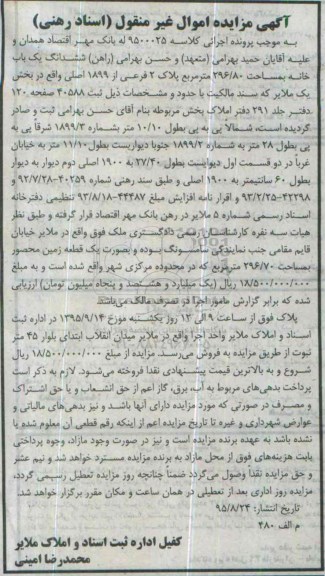 آگهی مزایده اموال غیر منقول (اسناد رهنی)
به موجب پرونده اجرائی کلاسه ۹۵۰۰۰۲۵ له بانک مهر اقتصاد همدان و
علیه آقایان حمید بهرامی (متعهد) و حسن بهرامی (راهن) ششدانگ یک باب
خانه بمساحت ۲۹۶/۸۰ مترمربع پلاک ۲ فرعی از ۱۸۹۹ اصلی واقع در بخش
یک ملایر که سند مالکیت با حدود و مشخصات ذیل ثبت ۴۰۵۸۸ صفحه ۱۲۰
دفتر جلد ۲۹۱ دفتر املاک بخش مربوطه بنام آقای حسن بهرامی ثبت و صادر
گردیده است، شمالا پی به پی بطول ۱۰/۱۰ متر بشماره ۱۸۹۹/۳ شرقا پی به
پی بطول ۲۸ متر به شماره ۱۸۹۹/۲ جنوبا دیواریست بطول ۱۱/۱۰ متر به خیابان
غربا در دو قسمت اول دیوایست بطول ۲۷/۴۰ به ۱۹۰۰ اصلی دوم دیوار به دیوار
بطول ۶۰ سانتیمتر به ۱۹۰۰ اصلی و طبق سند رهنی شماره ۴۰۲۵۹-۹۲/۷/۲۸ و
۴۲۲۹۸-۹۳/۲/۲۵ و اقرار نامه افزایش مبلغ ۴۴۴۸۷-۹۳/۸/۱۸ تنظیمی دفترخانه
اسناد رسمی شماره ۵ ملایر در رهن بانک مهر اقتصاد قرار گرفته و طبق نظر
هیات سه نفره کارشناسان رسمی دادگستری ملک فوق واقع در ملایر خیابان
قایم مقامی جنب نمایندگی سامسونگ بوده و بصورت یک قطعه زمین محصور
بمساحت ۲۹۶/۷۰ مترمربع که در محدوده مرکزی شهر واقع شده است و به مبلغ
۱۸/۵۰۰/۰۰۰/۰۰۰ ریال (یک میلیارد و هشتصد و پنجاه میلیون تومان) ارزیابی
شده که برابر گزارش مامور اجرا در تصرف مالک می‌باشد
پلاک فوق از ساعت ۹ الی ۱۲ روز یکشنبه مورخ ۱۳۹۵/۹/۱۴ در اداره ثبت
اسناد و املاک ملایر واحد اجرا واقع در ملایر میدان انقلاب ابتدای بلوار ۴۵ متر
ثبوت از طریق مزایده به فروش می‌رسد. مزایده از مبلغ ۱۸/۵۰۰/۰۰۰/۰۰۰ ریال
شروع و به بالاترین قیمت پیشنهادی نقدا فروخته می‌شود. لازم به ذکر است
پرداخت بدهی‌های مربوط به آب، برق، گاز اعم از حق انشعاب و یا حق اشتراک
و مصرف در صورتی که مورد مزایده دارای آنها باشد و نیز بدهی‌های مالیاتی و
عوارض شهرداری و غیره تا تاریخ مزایده اعم از اینکه رقم قطعی آن معلوم شده یا
نشده باشد به عهده برنده مزایده است و نیز در صورت وجود مازاد، وجوه پرداختی
بابت هزینه‌های فوق از محل مازاد به برنده مزایده مسترد خواهد شد و نیم عشر
و حق مزایده نقدا وصول می‌گردد ضمنا چنانچه روز مزایده تعطیل رسمی گردد،
مزایده روز اداری بعد از تعطیلی در همان ساعت و مکان مقرر برگزار خواهد شد.
تاریخ انتشار: ۹۵/۸/۲۴
م الف ۴۸۰
کفیل اداره ثبت اسناد و املاک ملایر
محمدرضا امینی